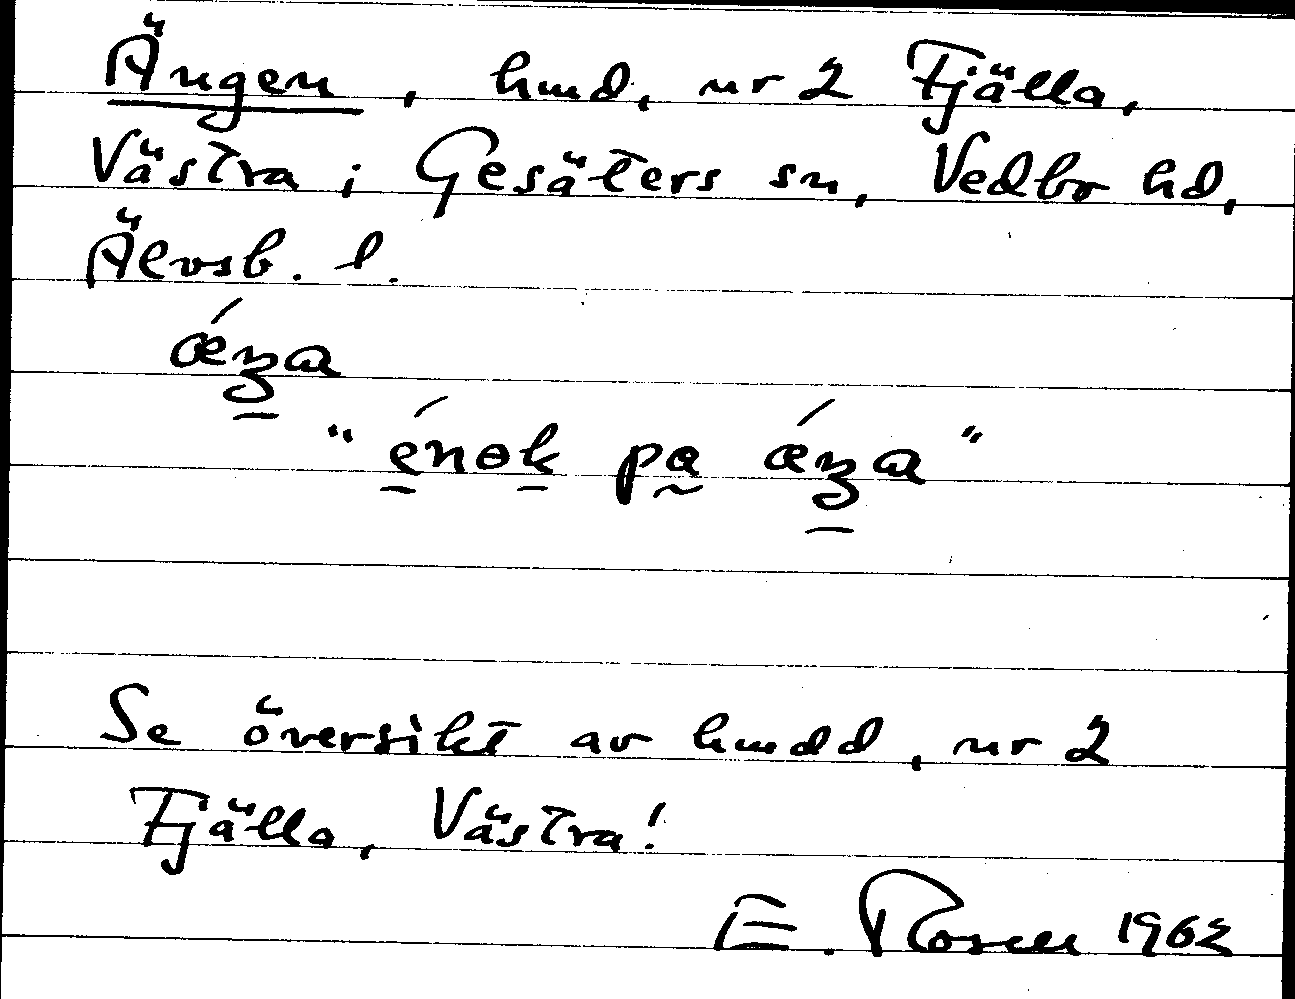 Ängen, hmd, nr 2 Fjälla,
Västra i Gesäters sn, Vedbo hd,
Älvsb. l.
ǽŋa
"énok pa ǽŋa"
Se översikt av hmdd, nr 2
Fjälla, Västra!
E. Rosell 1962